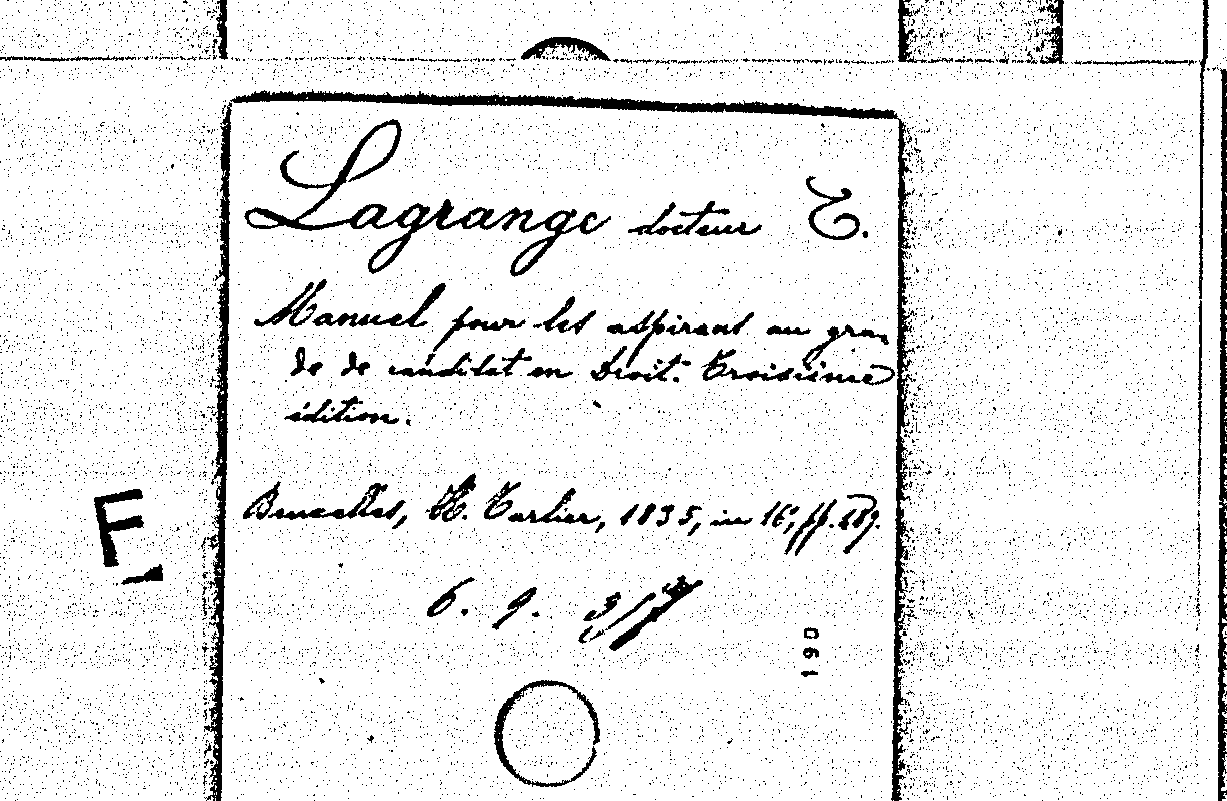 Lagrange docteur E.
Manuel pour les aspirant au gra-
de de candidat en Droit. Troisième
édition.
Bruxelles, H. Tarlier, 1835, in 16°, pp. 289.
6. 9. 3
190
F